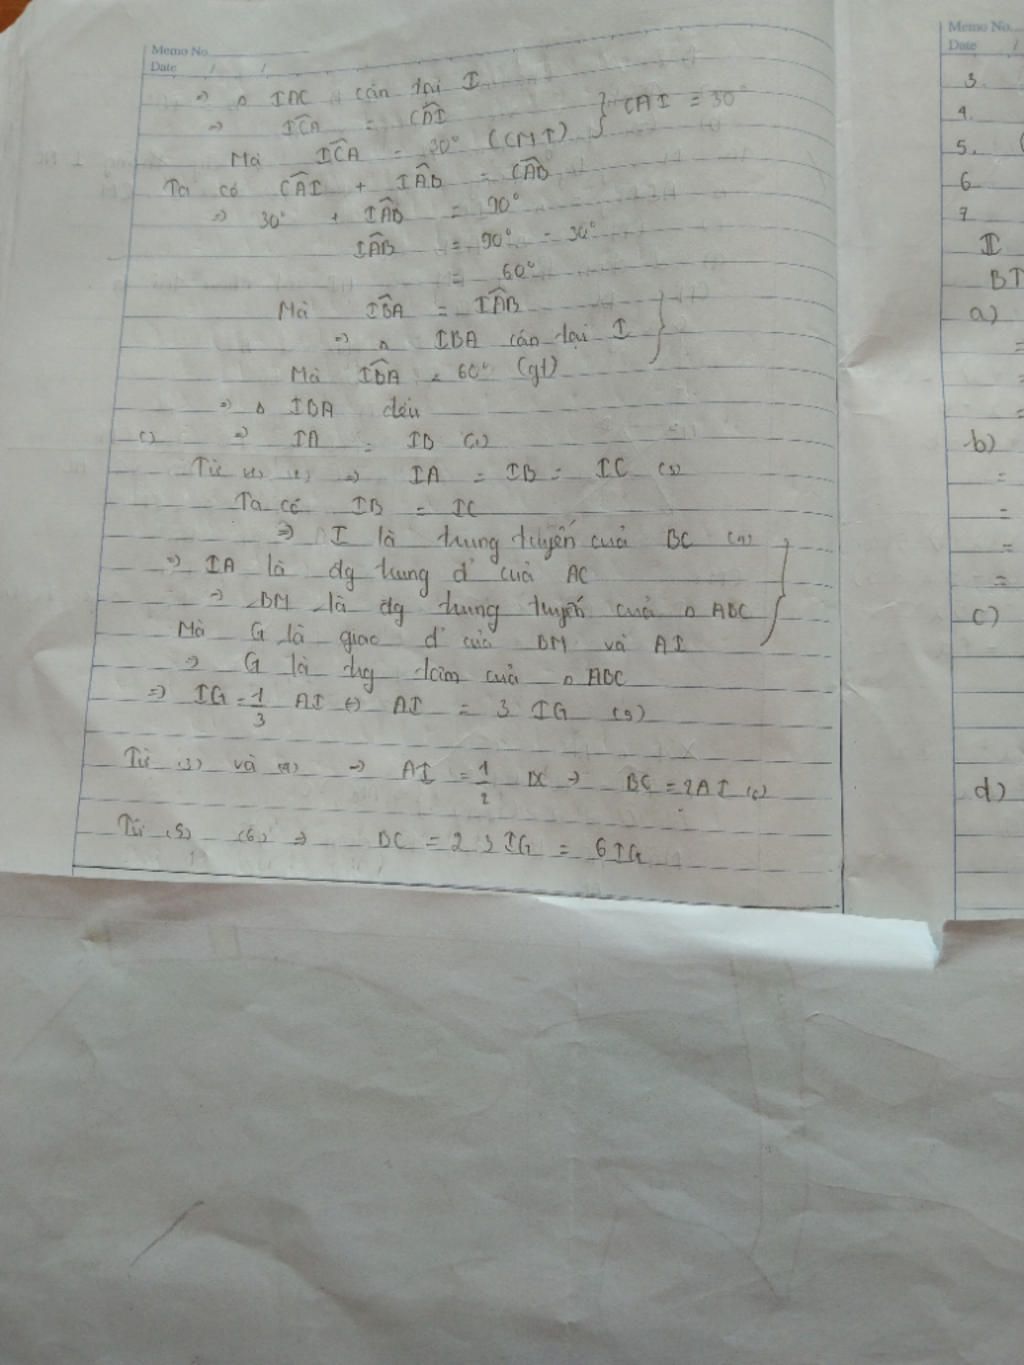 Memo No.
Date / /
=> Δ IAC cân tại I
=> ICA = CAI } CAI = 30°
Mà ICA = 30° (CMT)
Ta có CAI + IAB = CAB
=> 30° + IAB = 90°
IAB = 90° - 30°
= 60°
Mà IBA = IAB
=> Δ IBA cân tại I
Mà IBA = 60° (gt)
=> Δ IBA đều
c) => IA = IB (2)
Từ (1) (2) => IA = IB = IC (3)
Ta có IB = IC
=> I là trung tuyến cuả BC (4)
=> IA là đg trung đ' cuả AC
=> BM là đg trung tuyến cuả Δ ABC
Mà G là giao đ' của BM và AI
=> G là trg tâm cuả Δ ABC
=> IG = 1/3 AI <=> AI = 3 IG (5)
Từ (3) và (4) => AI = 1/2 BC => BC = 2AI (6)
Từ (5) (6) => BC = 2 3 IG = 6IG
Memo No.
Date /
3.
4.
5.
6
7
II
BT
a)
=
=
=
b)
=
=
=
=
c)
d)